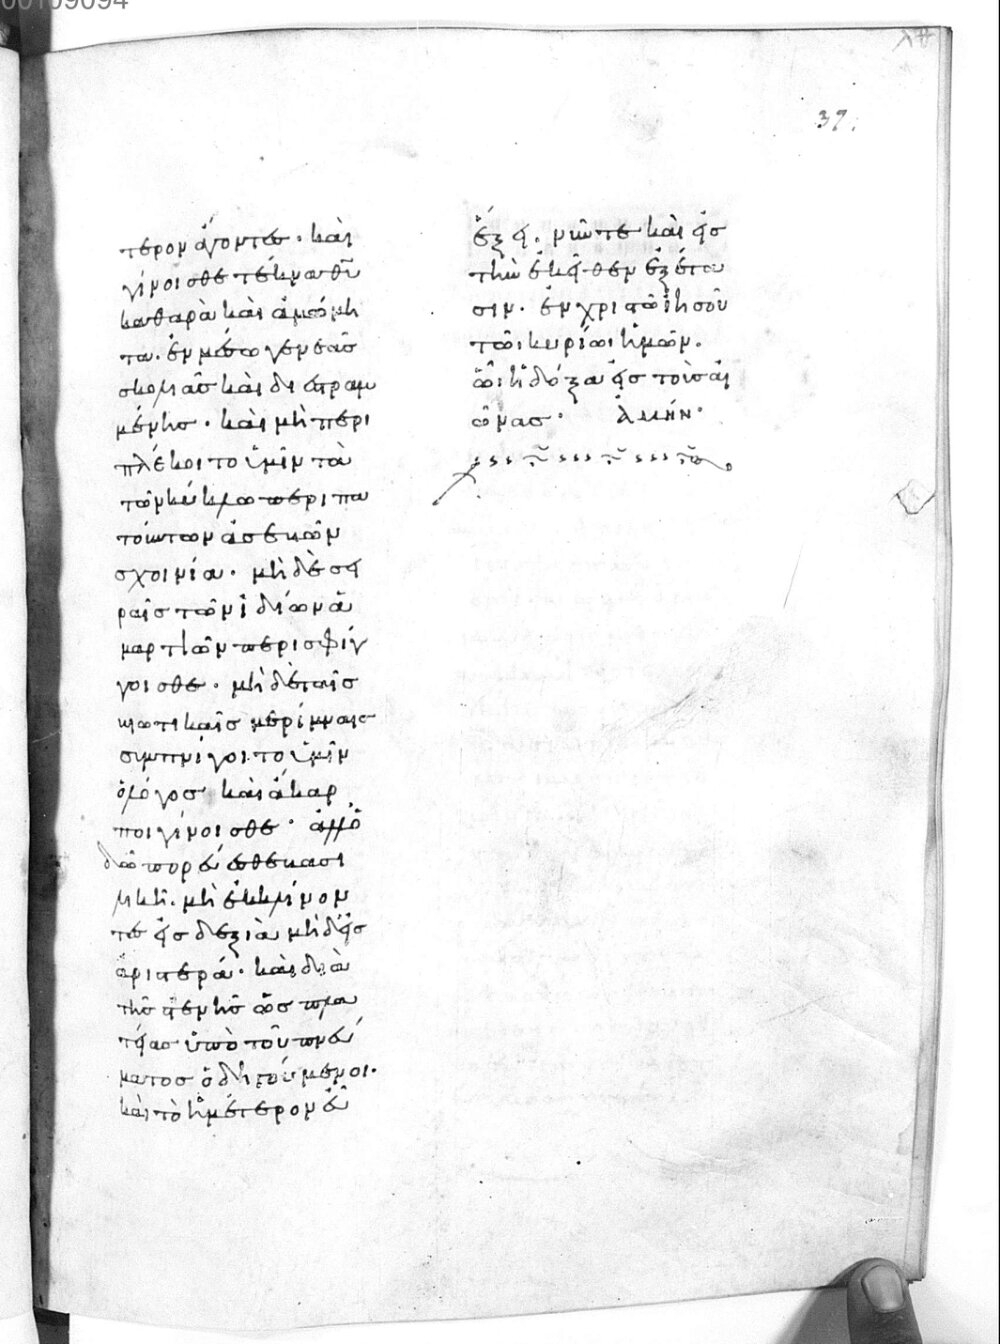 00109094
λη
37.
τερον ἄγοντες. καὶ
γίνοισθε τέκνα θῦ
καθαρὰ καὶ ἀμώμη
τα. ἐν μέσω γενεᾶσ
σκολιᾶσ καὶ διεστραμ
μένησ. καὶ μὴ περι
πλέκοιτο ὑμῖν τὰ
τῶν κύκλω περιπα
τούντων ἀσεβῶν
σχοινία. μὴ δὲ σει
ραῖσ τῶν ἰδίων ἁ
μαρτιῶν περισφίγ
γοισθε. μὴ δὲ ταῖσ
βιωτικαῖσ μερίμναισ
συμπνίγοιτο ὑμῖν
ὁ λόγοσ καὶ ἄκαρ
ποι γίνοισθε. ἀλλ' ὁ
δῶ πορεύεσθε βασι
λικῆ. μὴ ἐκκλίνον
τες εἰσ δεξιὰ μὴ δ' εἰσ
ἀριστερά. καὶ διὰ
τῆσ στενῆσ ὡσ πλα
τείασ ὑπὸ τοῦ πνεύ
ματοσ ὁδηγούμενοι.
καὶ τὸ ἡμέτερον εὖ
ἕξει. νῦν τε καὶ εἰσ
τὴν ἐκεῖθεν ἐξέτα
σιν. ἐν χριστῶι ἰησοῦ
τῶι κυρίωι ἡμῶν.
ὧι ἡ δόξα εἰσ τοὺσ αἰ
ῶνασ. ἈΜΗΝ.